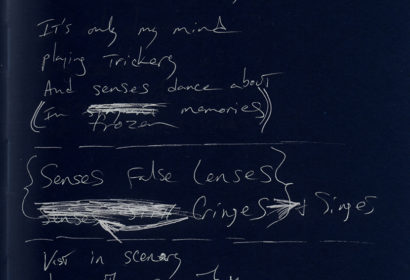 It's only my mind
playing Trickery
And senses dance about
(In frozen memories)
{Senses False Lenses}
Cringes → Singes
in scenery